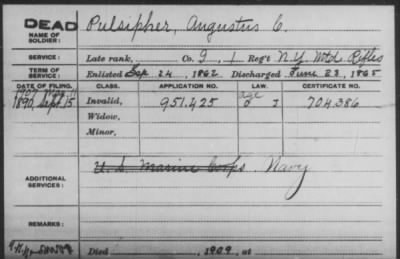 DEAD
NAME OF SOLDIER: Pulsipher, Augustus C.
SERVICE: Late rank, Co. G, 1 Reg't N.Y. Mtd Rifles
TERM OF SERVICE: Enlisted Sep 24, 1862 Discharged June 23, 1865
DATE OF FILING. CLASS. APPLICATION NO. LAW. CERTIFICATE NO.
1890, Sept 15 Invalid, 951.425 age 704.386
Widow,
Minor,
ADDITIONAL SERVICES: U.S. Marine Corps. Navy
REMARKS:
Died 1909, at